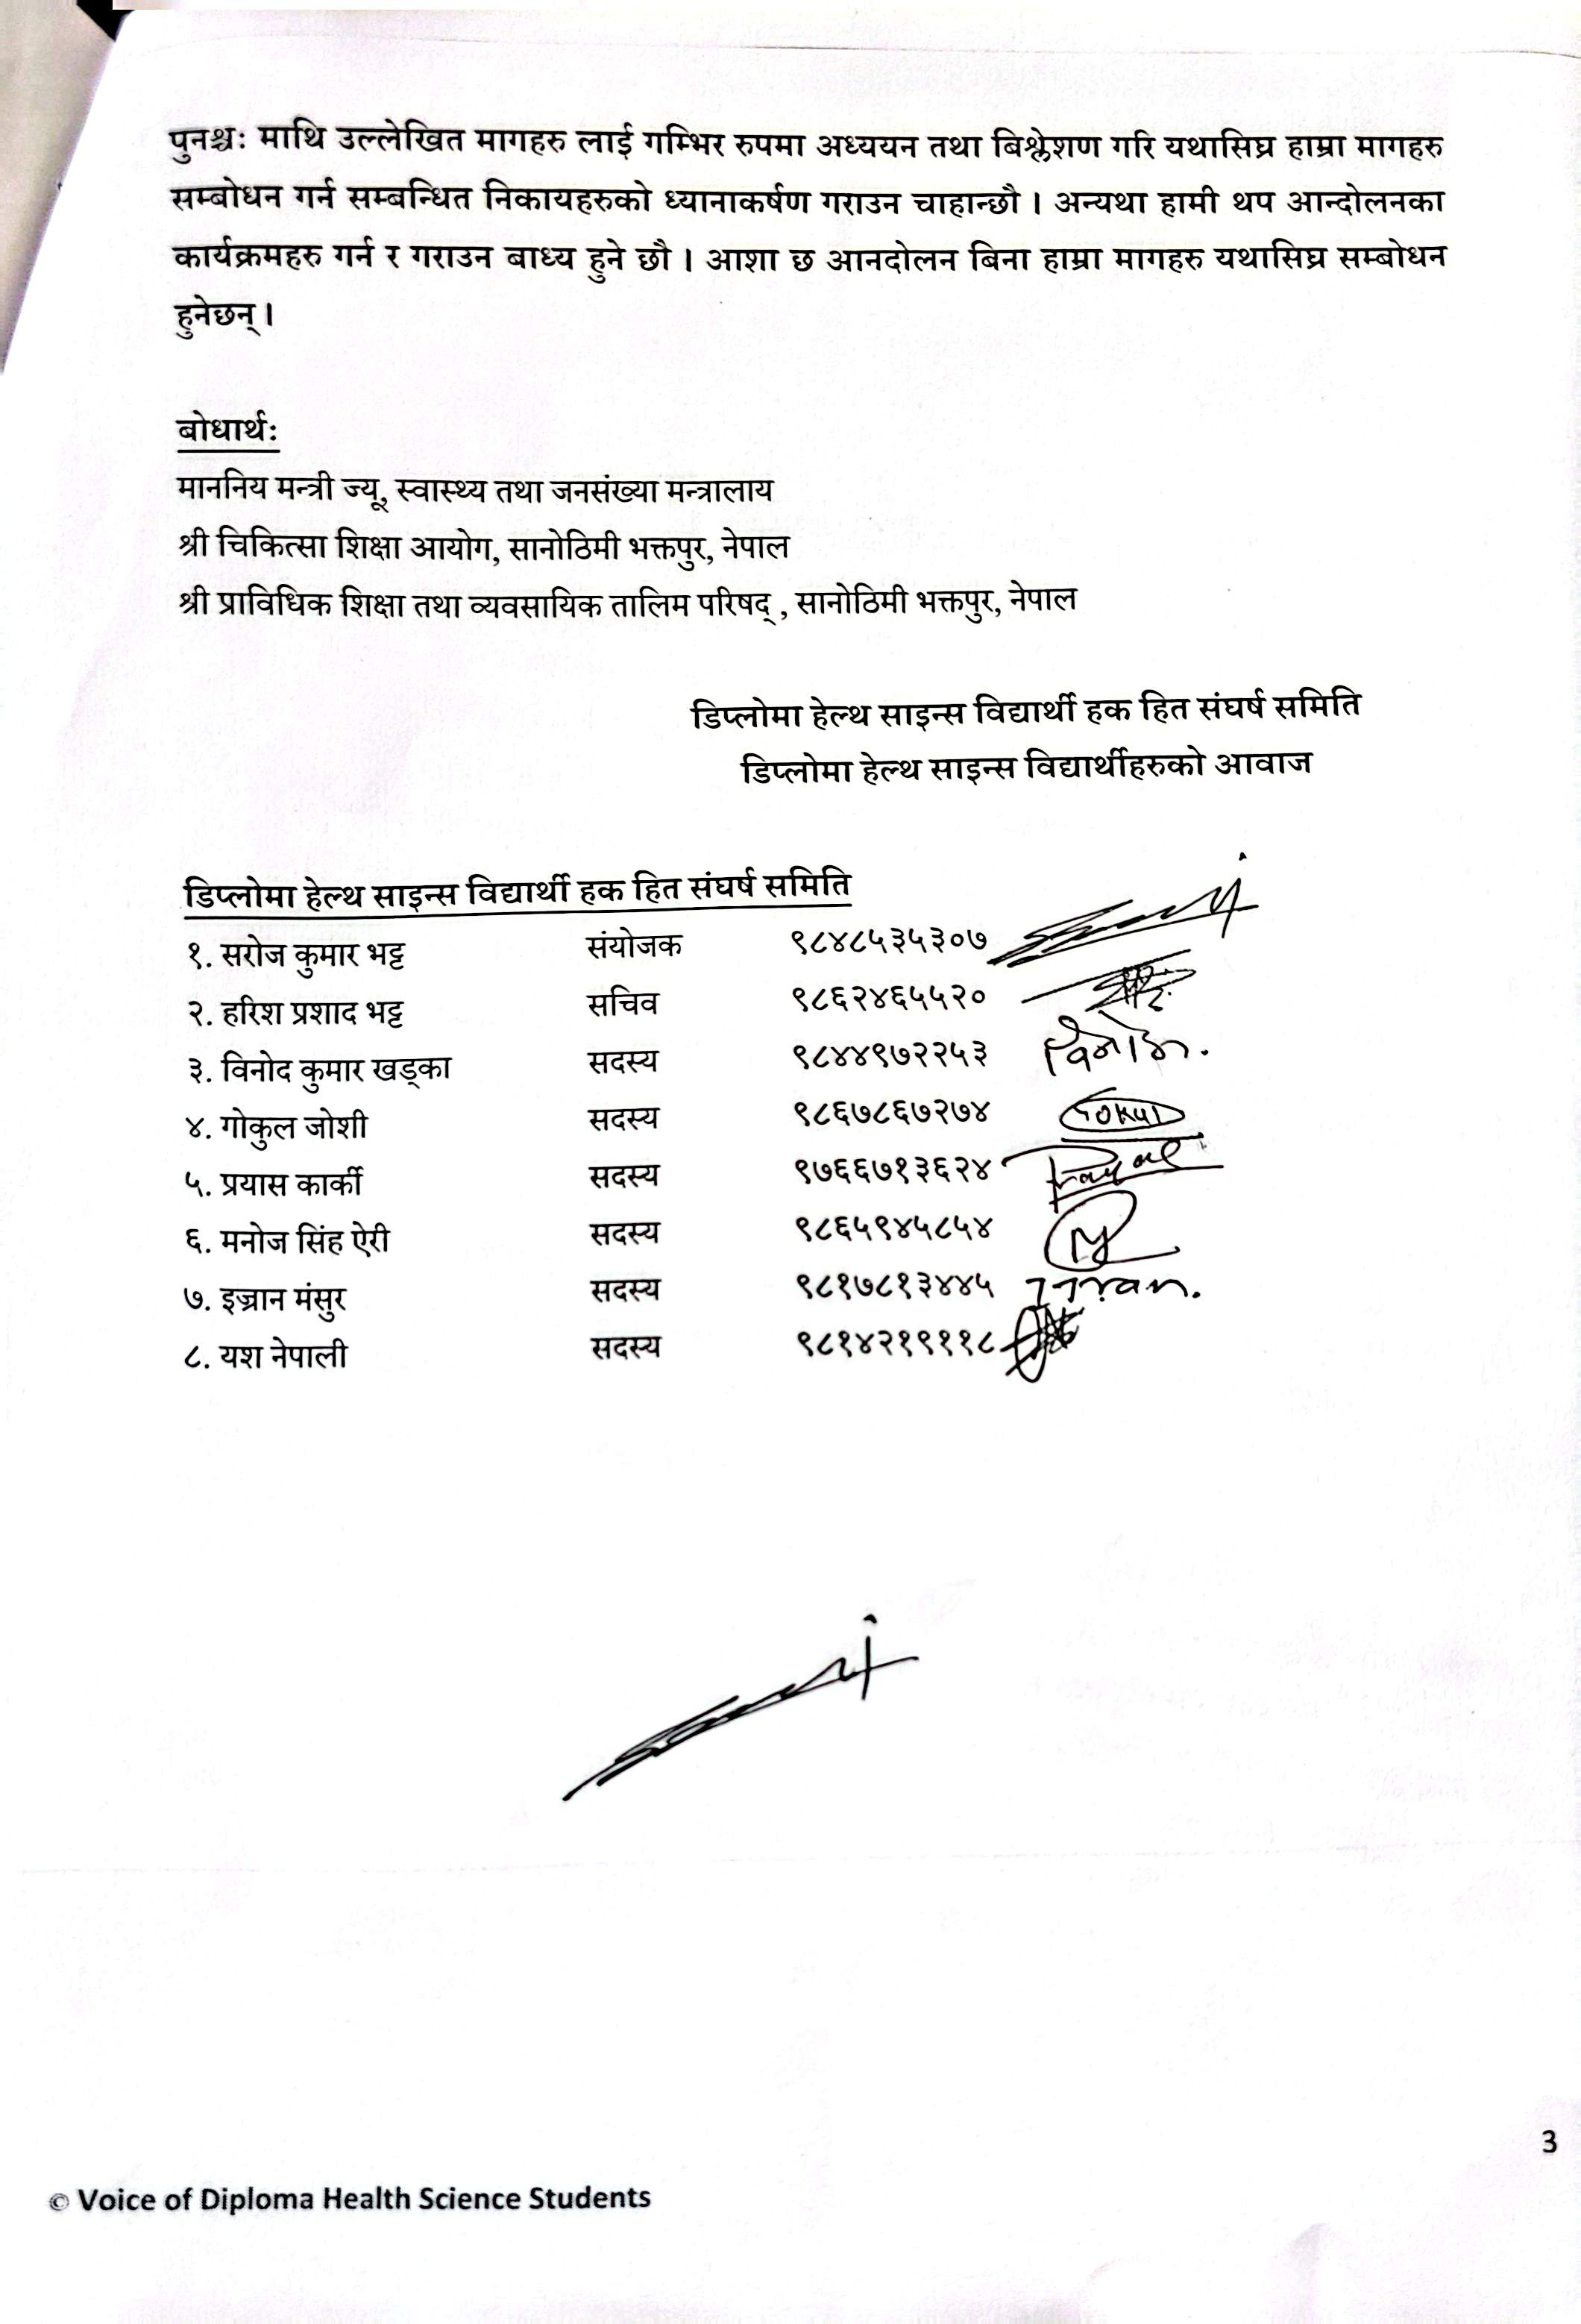 पुनश्चः माथि उल्लेखित मागहरु लाई गम्भिर रुपमा अध्ययन तथा बिश्लेशण गरि यथासिघ्र हाम्रा मागहरु
सम्बोधन गर्न सम्बन्धित निकायहरुको ध्यानाकर्षण गराउन चाहान्छौ । अन्यथा हामी थप आन्दोलनका
कार्यक्रमहरु गर्न र गराउन बाध्य हुने छौ । आशा छ आनदोलन बिना हाम्रा मागहरु यथासिघ्र सम्बोधन
हुनेछन् ।
बोधार्थः
माननिय मन्त्री ज्यू, स्वास्थ्य तथा जनसंख्या मन्त्रालाय
श्री चिकित्सा शिक्षा आयोग, सानोठिमी भक्तपुर, नेपाल
श्री प्राविधिक शिक्षा तथा व्यवसायिक तालिम परिषद् , सानोठिमी भक्तपुर, नेपाल
डिप्लोमा हेल्थ साइन्स विद्यार्थी हक हित संघर्ष समिति
डिप्लोमा हेल्थ साइन्स विद्यार्थीहरुको आवाज
डिप्लोमा हेल्थ साइन्स विद्यार्थी हक हित संघर्ष समिति
१. सरोज कुमार भट्ट संयोजक ९८४८५३५३०७
२. हरिश प्रशाद भट्ट सचिव ९८६२४६५५२०
३. विनोद कुमार खड्का सदस्य ९८४४९७२२५३ विनोद
४. गोकुल जोशी सदस्य ९८६७८६७२७४ GOKUL
५. प्रयास कार्की सदस्य ९७६६७१३६२४
६. मनोज सिंह ऐरी सदस्य ९८६५९४५८५४
७. इज्रान मंसुर सदस्य ९८१७८१३४४५
८. यश नेपाली सदस्य ९८१४२१९११८
3
© Voice of Diploma Health Science Students